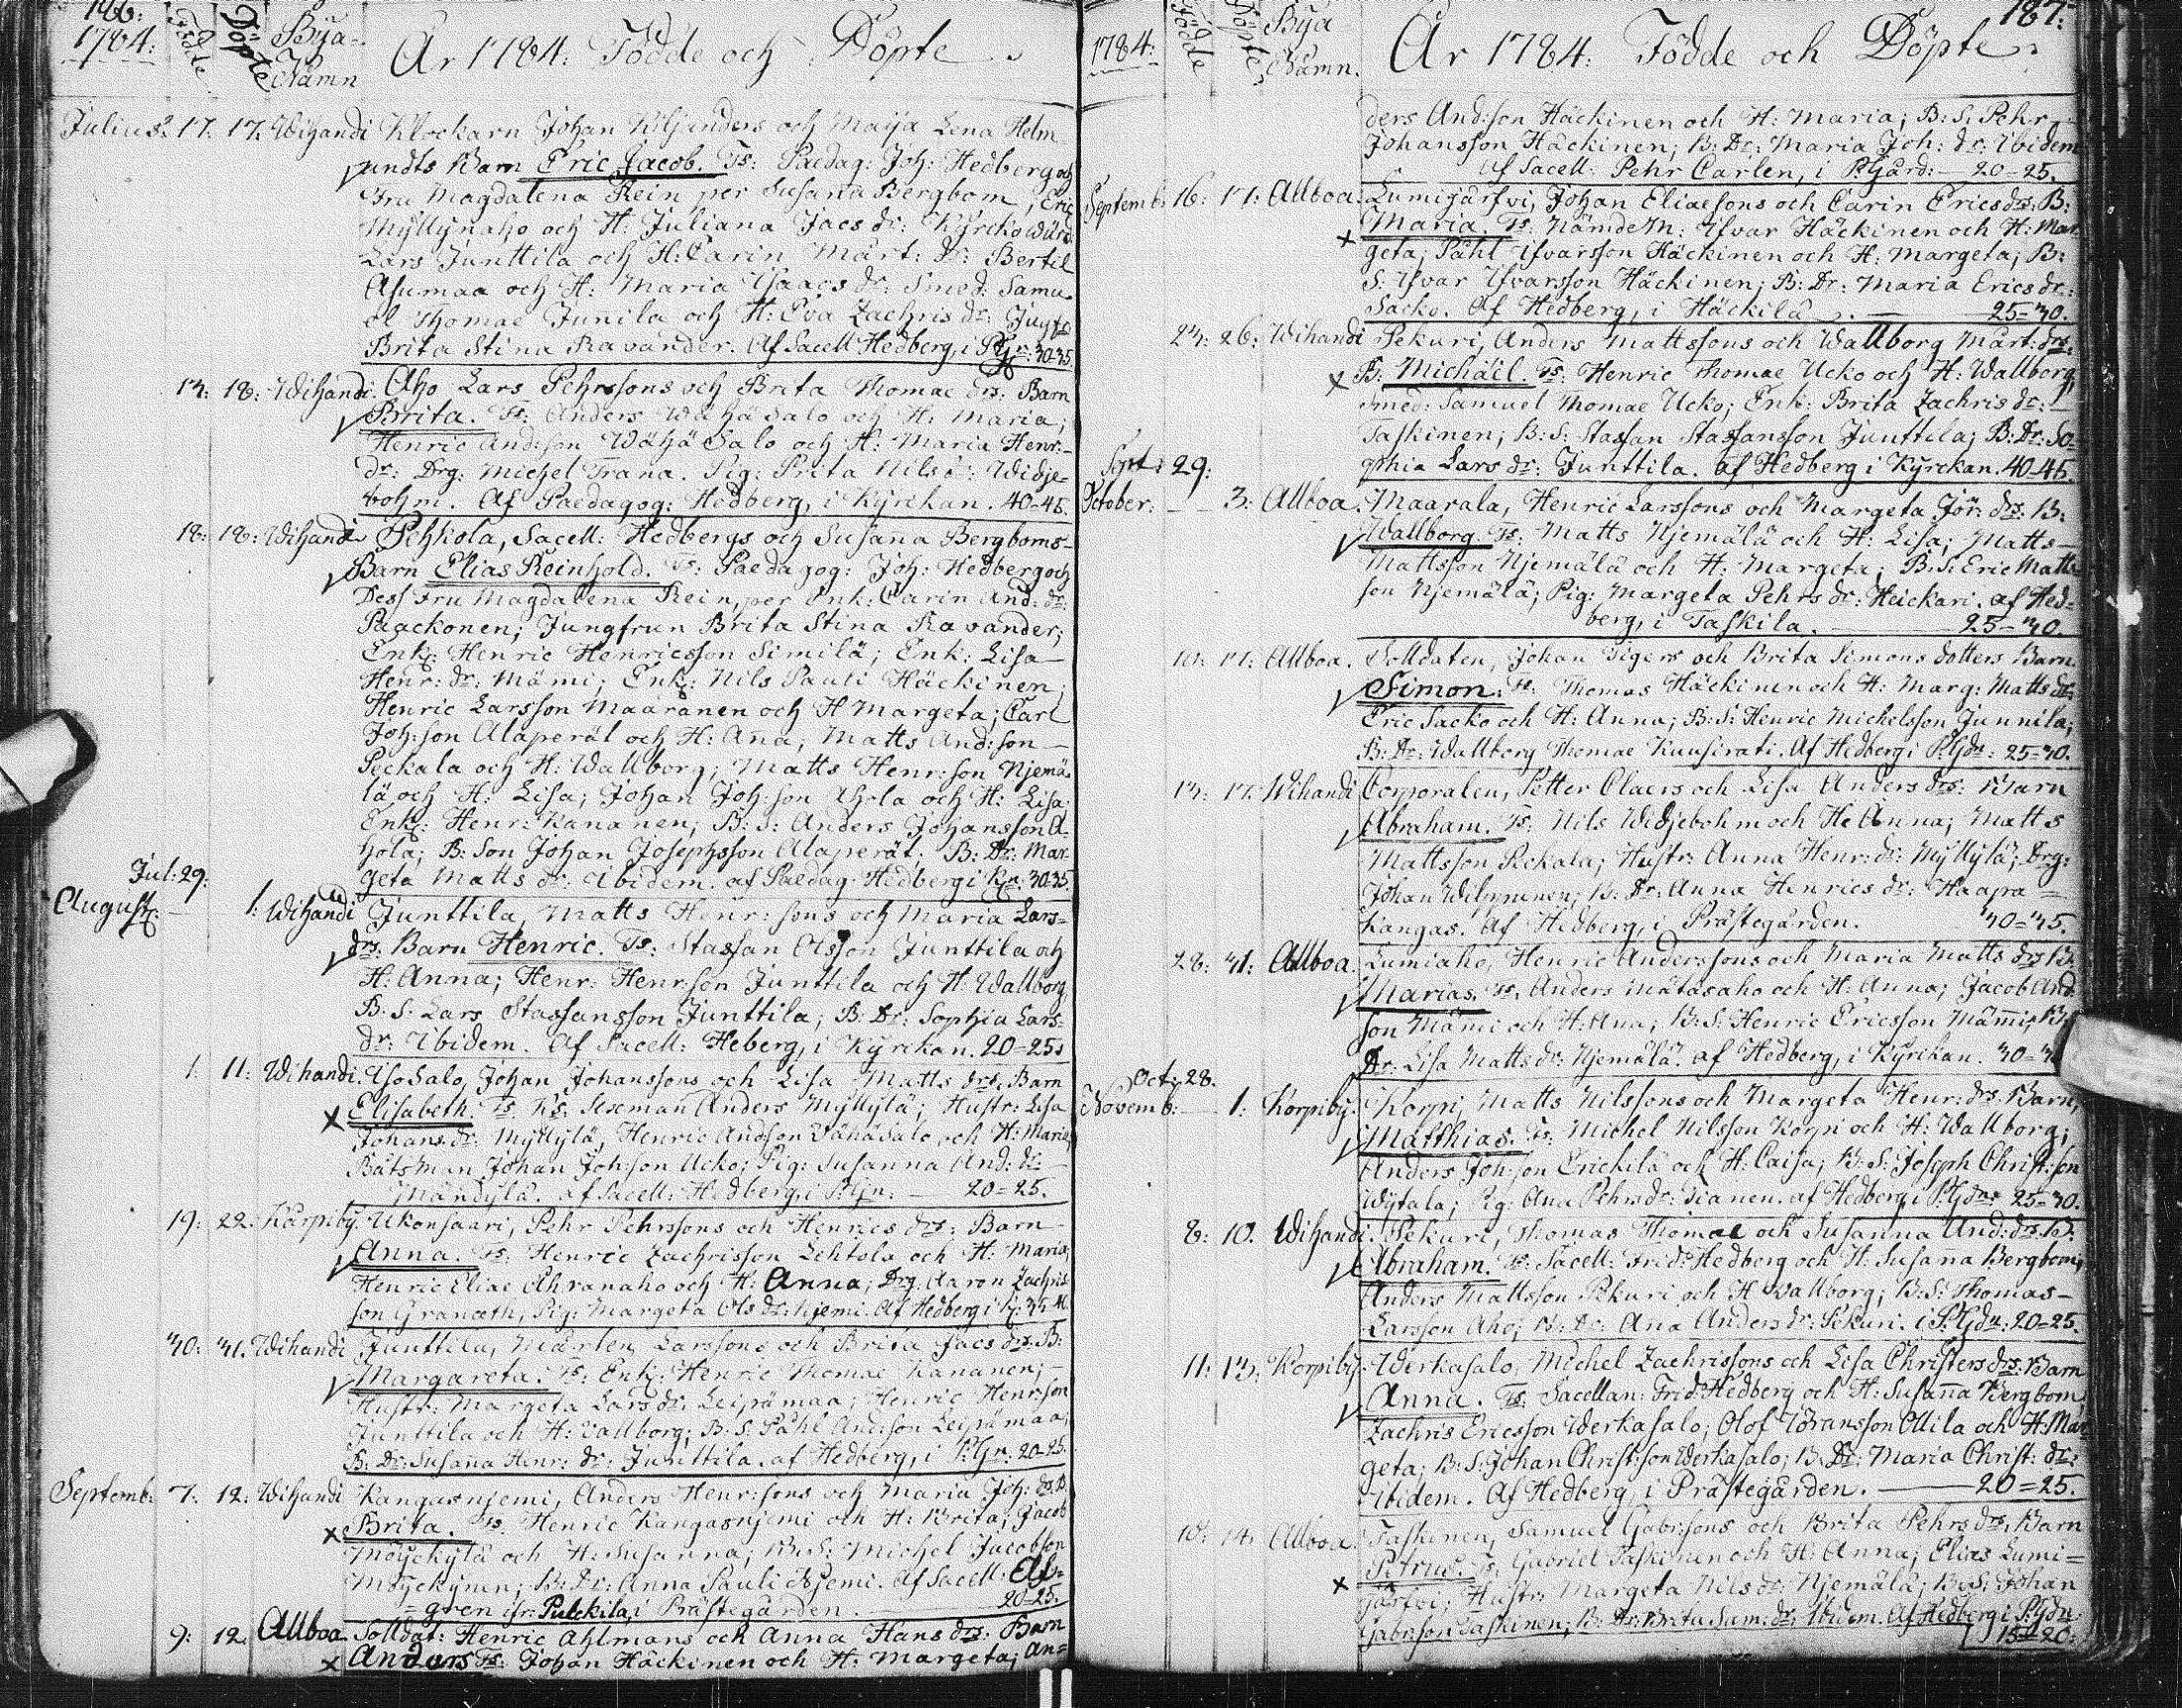 186:
1784: Födde Döpte Bya-Namn År 1784: Födde och Döpte.
Julius: 17. 17. Wihandi Klockarn Johan Kiljanders och Maija Lena Helm
undts Barn Eric Jacob. Ts: Paedag: Joh: Hedberg och
Fru Magdalena Rein per Susana Bergbom, Eric
Myllynaho och H: Juliana Jacs dr: Kyrckowärd
Lars Junttila och H: Carin Märt: dr: Bertil
Asumaa och H: Maria Isaacs dr: Smed: Samu
el Thomae Junila och H: Eva Zachris dr: Jugfr
Brita Stina Ravander. Af Sacell Hedberg, i PGr: 30-35.
14: 18: Wihandi. Aho Lars Pehrssons och Brita Thomae drs: Barn
Brita. Ts: Anders Wähä Salo och H: Maria;
Henric And:son Wähä Salo och H: Maria Henr:
dr: Drg: Michel Trana. Pig: Brita Nils dr: Widje-
bohm. Af Paedagog: Hedberg, i Kyrckan. 40-45.
18: 18: Wihandi Pehkola, Sacell: Hedbergs och Susana Bergboms-
Barn Elias Reinhold. Ts: Paedagog: Joh: Hedberg och
Dess Fru Magdalena Rein, per Enk: Carin And: dr:
Paackonen; Jungfrun Brita Stina Ravander;
Enkl: Henric Henricsson Similä; Enk: Lisa
Henr: dr: Mämi; Enkl: Nils Pauli Häckinen,
Henric Larsson Maaranen och H Margeta; Carl
Joh:son Alaperät och H: Ana, Matts And:son
Peckala och H: Wallborg; Matts Henr:son Njemä
lä och H: Lisa; Johan Joh:son Ahola och H: Lisa
Enkl: Henr: Kananen; B: S: Anders Johansson A-
hola; B: Son Johan Josephsson Alaperät. B: Dr: Mar-
geta Matts dr: Ibidem. af Paedag Hedberg i Kn: 30-35.
Jul: 29:
August: 1: Wihandi Junttila, Matts Henr: sons och Maria Lars-
drs: Barn Henric. Ts: Staffan Olsson Junttila och
H: Anna; Henr: Henr:son Junttila och H: Wallborg
B: S: Lars Staffansson Junttila; B: Dr: Sophia Lars
dr: Ibidem. Af Sacell: Heberg, i Kyrckan. 20=25.
1: 11: Wihandi. Iso Salo, Johan Johanssons och Lisa Matts drs. Barn
Elisabeth. Ts: Anders Myllylä; Hustr: Lisa
Johans dr: Myllylä, Henric Andson Vähäsalo och H: Maria
Båtsman Johan Joh:son Ucko; Pig: Susanna And: dr:
af Sacell: Hedberg, i P:Gn: 20=25.
19: 22: Korpiby Ukonsaari, Pehr Pehrssons och Henrics drs: Barn
Anna. Ts: Henric Zachrisson Lehtola och H: Maria;
Henric Eliae Ahvanaho och H: Anna; Drg: Aaron Zachris
son Granæth, Pig: Margeta Ols dr: Njemi. Af Hedberg i K: 35-40.
30: 31. Wihandi Junttila, Mårten Larssons och Brita Jacs drs: B:
Margareta. Ts: Enkl: Henric Thomae Kananen;
Hustr: Margeta Lars dr: Leipämaa; Henric Henr:son
Junttila och H: Vallborg; B: S: Påhl And:son Leipämaa;
B: Dr: Susana Henr: dr: Junttila. af Hedberg, i P:Gr: 20-25.
Septemb: 7: 12: Wihandi Kangasnjemi, Anders Henr:sons och Maria Joh: drs: B
Brita. Ts: Henric Kangasnjemi och H: Brita; Jacob
Möyckylä och H: Susanna; B: S: Michel Jacobson
Möyckynen; B: Dr: Anna Pauli Njemi. Af Sacell: Alf-
gren ifr: Pulckila, i Prästegården. 20-25.
9: 12. Allboa Solldat: Henric Ahlmans och Anna Hans drs: Barn
Anders Ts: Johan Häckinen och H: Margeta; An=
187:
1784: Födde Döpte Bya Namn. År 1784: Födde och Döpte.
ders And:son Häckinen och H: Maria; B: S: Pehr
Johansson Häckinen; B: Dr: Maria Joh: dr: Ibidem
Af Sacell: Pehr Carlen, i P:Gård: 20-25.
Septemb: 16: 17: Allboa. Lumijärfvi, Johan Eliaesons och Carin Erics drs: B:
Maria. Ts: NämdeM: Ifvar Häckinen och H: Mar
geta; Påhl Ifvarsson Häckinen och H: Margeta; B:
S: Ifvar Ifvarsson Häckinen; B: Dr: Maria Erics dr:
Sacko. Af Hedberg, i Häckilä. 25=30.
24: 26: Wihandi Pekuri, Anders Mattssons och Wallborg Märt: drs.
B: Michaël. Ts: Henric Thomae Ucko och H: Wallborg,
Smed: Samuel Thomae Ucko; Enk: Brita Zachris dr:
Taskinen; B: S: Staffan Staffansson Junttila; B: Dr: So-
phia Lars dr: Junttila. af Hedberg i Kyrckan. 40-45.
Sept: 29:
October: 3: Allboa. Maarala, Henric Larssons och Margeta Jör: drs: B:
Wallborg. Ts: Matts Njemälä och H: Lisa; Matts
Mattsson Njemälä och H: Margeta; B: S: Eric Matts
son Njemälä; Pig: Margeta Pehrs dr: Heickari. af Hed-
berg, i Taskila. 25=30.
17: Allboa. Solldaten, Johan Tigers och Brita Simons dotters Barn
Simon. Ts: Thomas Häckinen och H: Marg: Matts dr:
Eric Sacko och H: Anna; B: S: Henric Michelsson Junnila;
B: Dr: Wallborg Thomae Kuusirati. Af Hedberg i P:Gdn: 25=30.
14: 17. Wihandi Corporalen, Petter Claers och Lisa Anders drs: Barn
Abraham. Ts: Nils Widjebohm och H: Anna; Matts
Mattsson Pekala; Hustr: Anna Henr: dr: Myllylä; Drg:
Johan Wilppunen; B: Dr: Anna Henrics dr: Haapa=
Kangas. Af Hedberg, i Prästegården. 40=45.
28: 31: Allboa. Lumiaho, Henric Anderssons och Maria Matts drs B:
Marias. Ts: Anders Mätäsaho och H: Anna; Jacob And
son Mämi och H: Ana; B: S: Henric Ericsson Mämi; B:
Dr: Lisa Matts dr: Njemälä. af Hedberg, i Kyrckan.
Oct: 28.
Novemb: 1: Korpiby. Korpi, Matts Nilssons och Margeta Henr: drs: Barn,
Matthias. Ts: Michel Nilsson Korpi och H: Wallborg;
Anders Joh:son Erickilä och H: Caisa; B: S: Joseph Christ:son
Wytala; Pig: Ana Pehrs dr: Tianen. af Hedberg, i P:Gdn: 25=30.
8: 10. Wihandi. Pekuri, Thomas Thomae och Susanna And: drs. B:
Abraham. Ts: Sacell: Frid: Hedberg och H: Susana Bergbom;
Anders Mattsson Pekuri och H Wallborg; B: S: Thomas
Larsson Aho; B: Dr: Ana Anders dr: Pekuri. i P:Gdn: 20=25.
11: 13: Korpiby. Werkasalo, Michel Zachrissons och Lisa Christers drs: Barn
Anna. Ts: Sacellan: Frid: Hedberg och H: Susana Bergbom
Zachris Ericsson Werkasalo; Olof Johansson Ollila och H: Mar
geta; B: S: Johan Christ:son Werkasalo; B: Dr: Maria Christ: dr:
Ibidem. Af Hedberg, i Prästegården. 20=25.
14: Allboa. Taskinen, Samuel Gabr:sons och Brita Pehrs drs. Barn
Petrus. Ts: Gabriel Taskinen och H: Anna; Elias Lumi=
järfvi; Hustr: Margeta Nils dr: Njemälä; B: S: Johan
Gabr:son Taskinen; B: Dr: Brita Sam: dr: Ibidem. Af Hedberg i P:Gdn:
15=20: